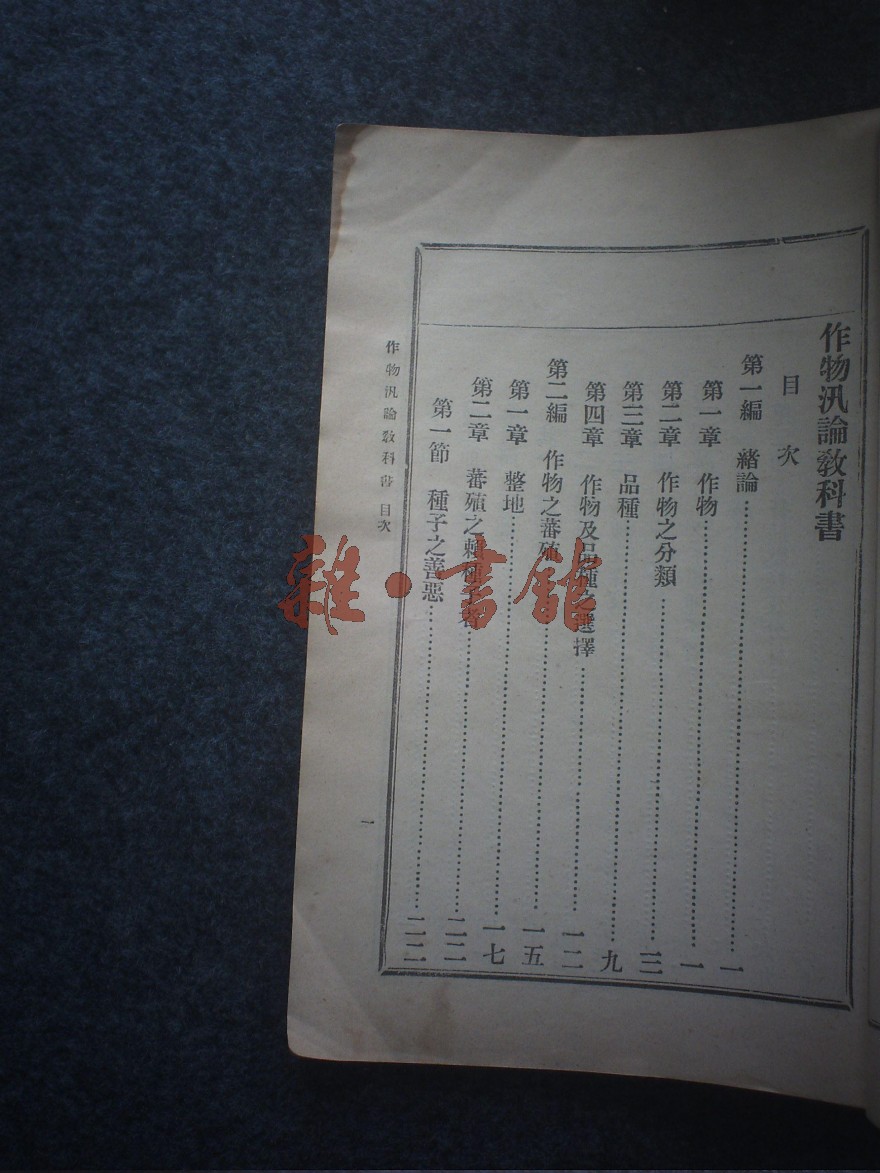 作物汎論敎科書
目次
第一編 緒論 一
第一章 作物 一
第二章 作物之分類 三
第三章 品種 九
第四章 作物及品種之選擇 一二
第二編 作物之蕃殖 一五
第一章 整地 一七
第二章 蕃殖之賴種子者 二二
第一節 種子之善惡 二二
作物汎論敎科書 目次
一
雜·書館